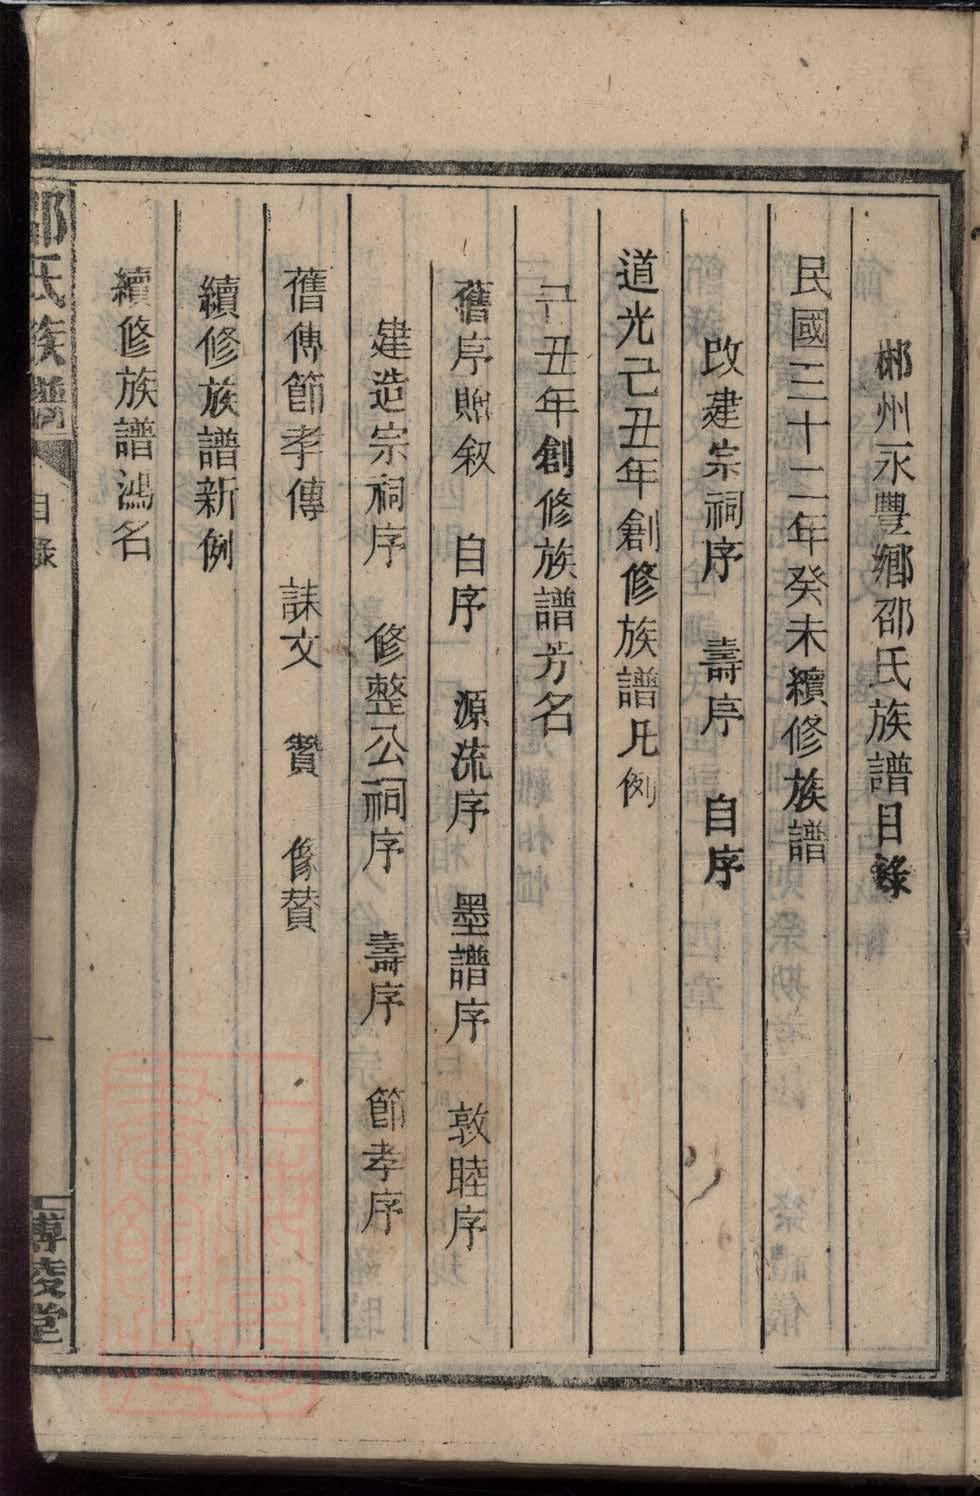 郴州永豐鄉邵氏族譜目錄
民國三十二年癸未續修族譜
改建宗祠序 壽序 自序
道光己丑年創修族譜凡例
己丑年創修族譜芳名
舊序贈敘 自序 源流序 墨譜序 敦睦序
建造宗祠序 修整公祠序 壽序 節孝序
舊傳節孝傳 誄文 贊 像贊
續修族譜新例
續修族譜鴻名
邵氏族譜 目錄 一 博陵堂
上海圖書館藏